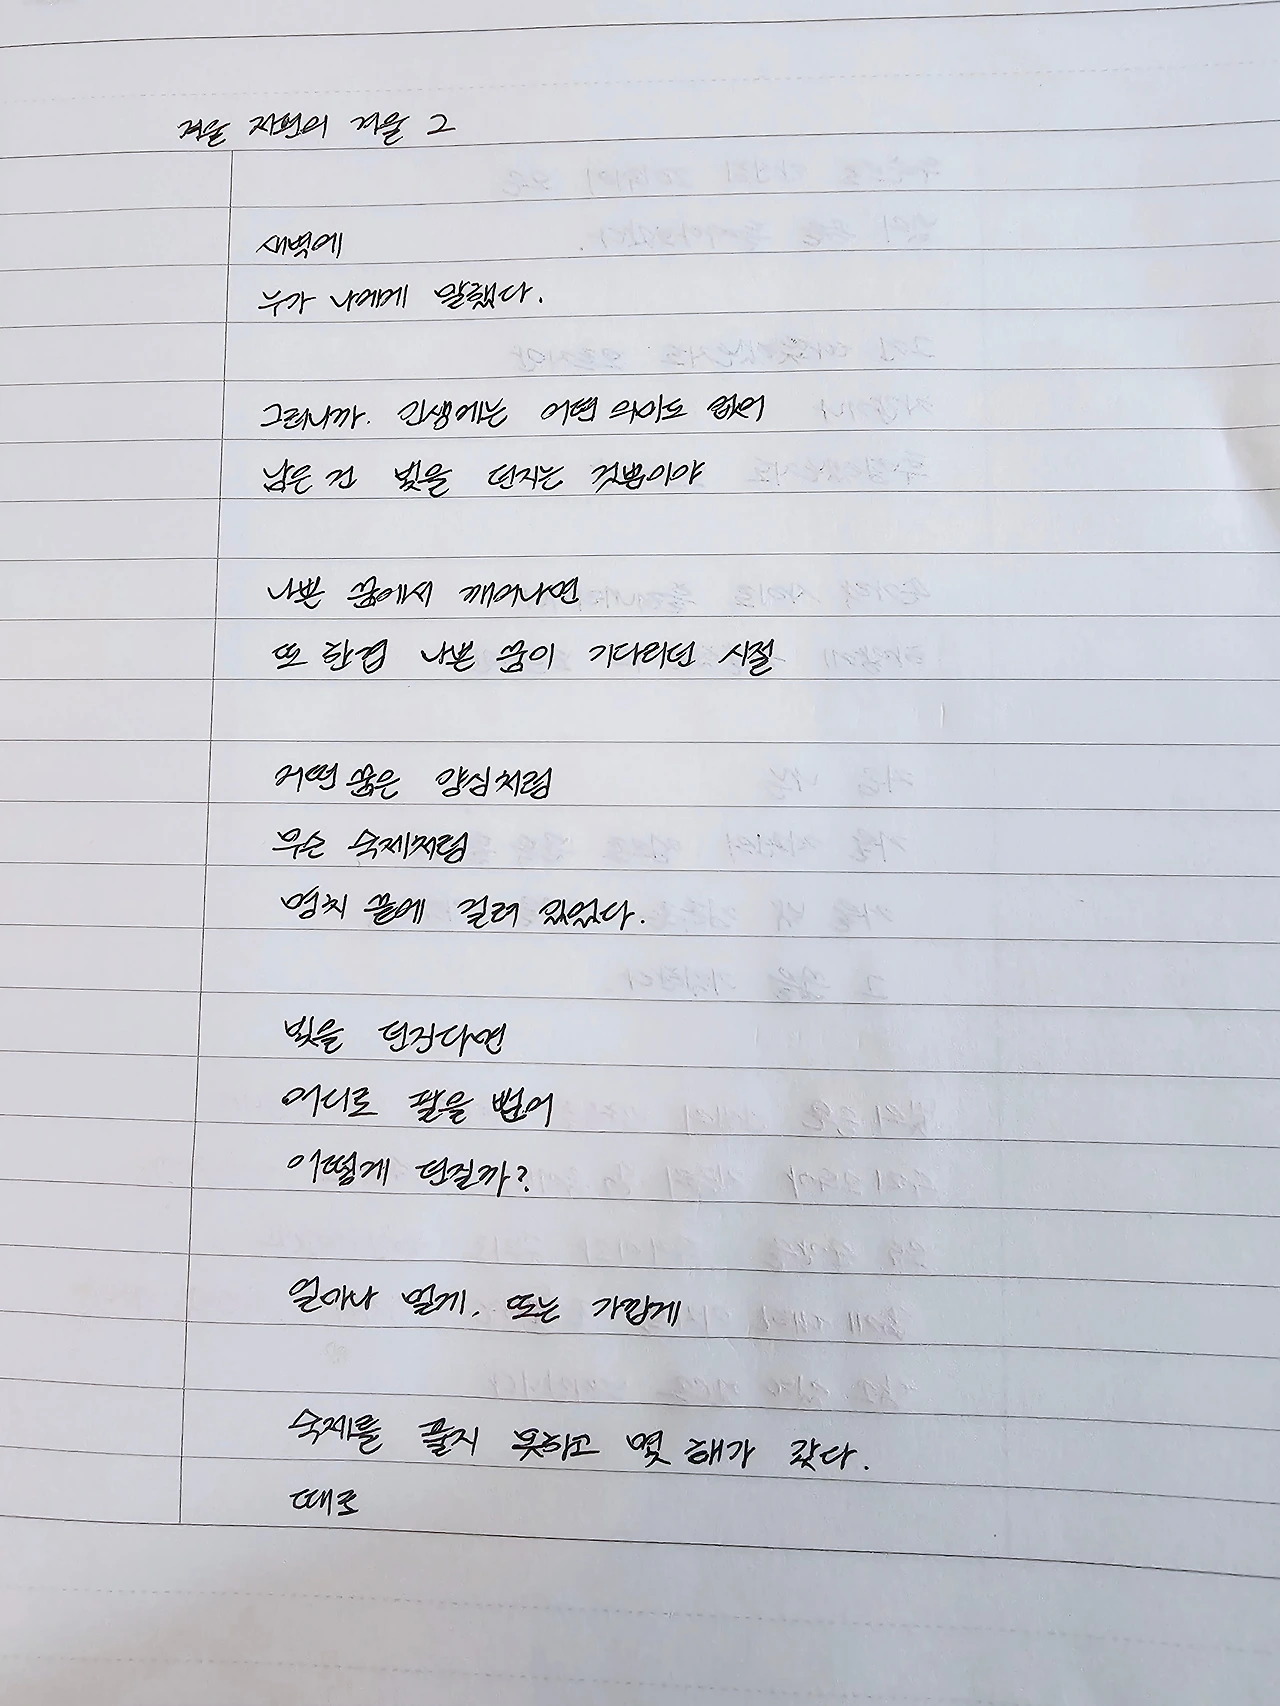 겨울 저편의 겨울 2
새벽에
누가 나에게 말했다.
그러니까. 인생에는 어떤 의미도 없어
남은 건 빛을 던지는 것뿐이야
나쁜 꿈에서 깨어나면
또 한겹 나쁜 꿈이 기다리던 시절
어떤 꿈은 양심처럼
무슨 숙제처럼
명치 끝에 걸려 있었다.
빛을 던진다면
어디로 팔을 뻗어
어떻게 던질까?
얼마나 멀게, 또는 가깝게
숙제를 풀지 못하고 몇 해가 갔다.
때로